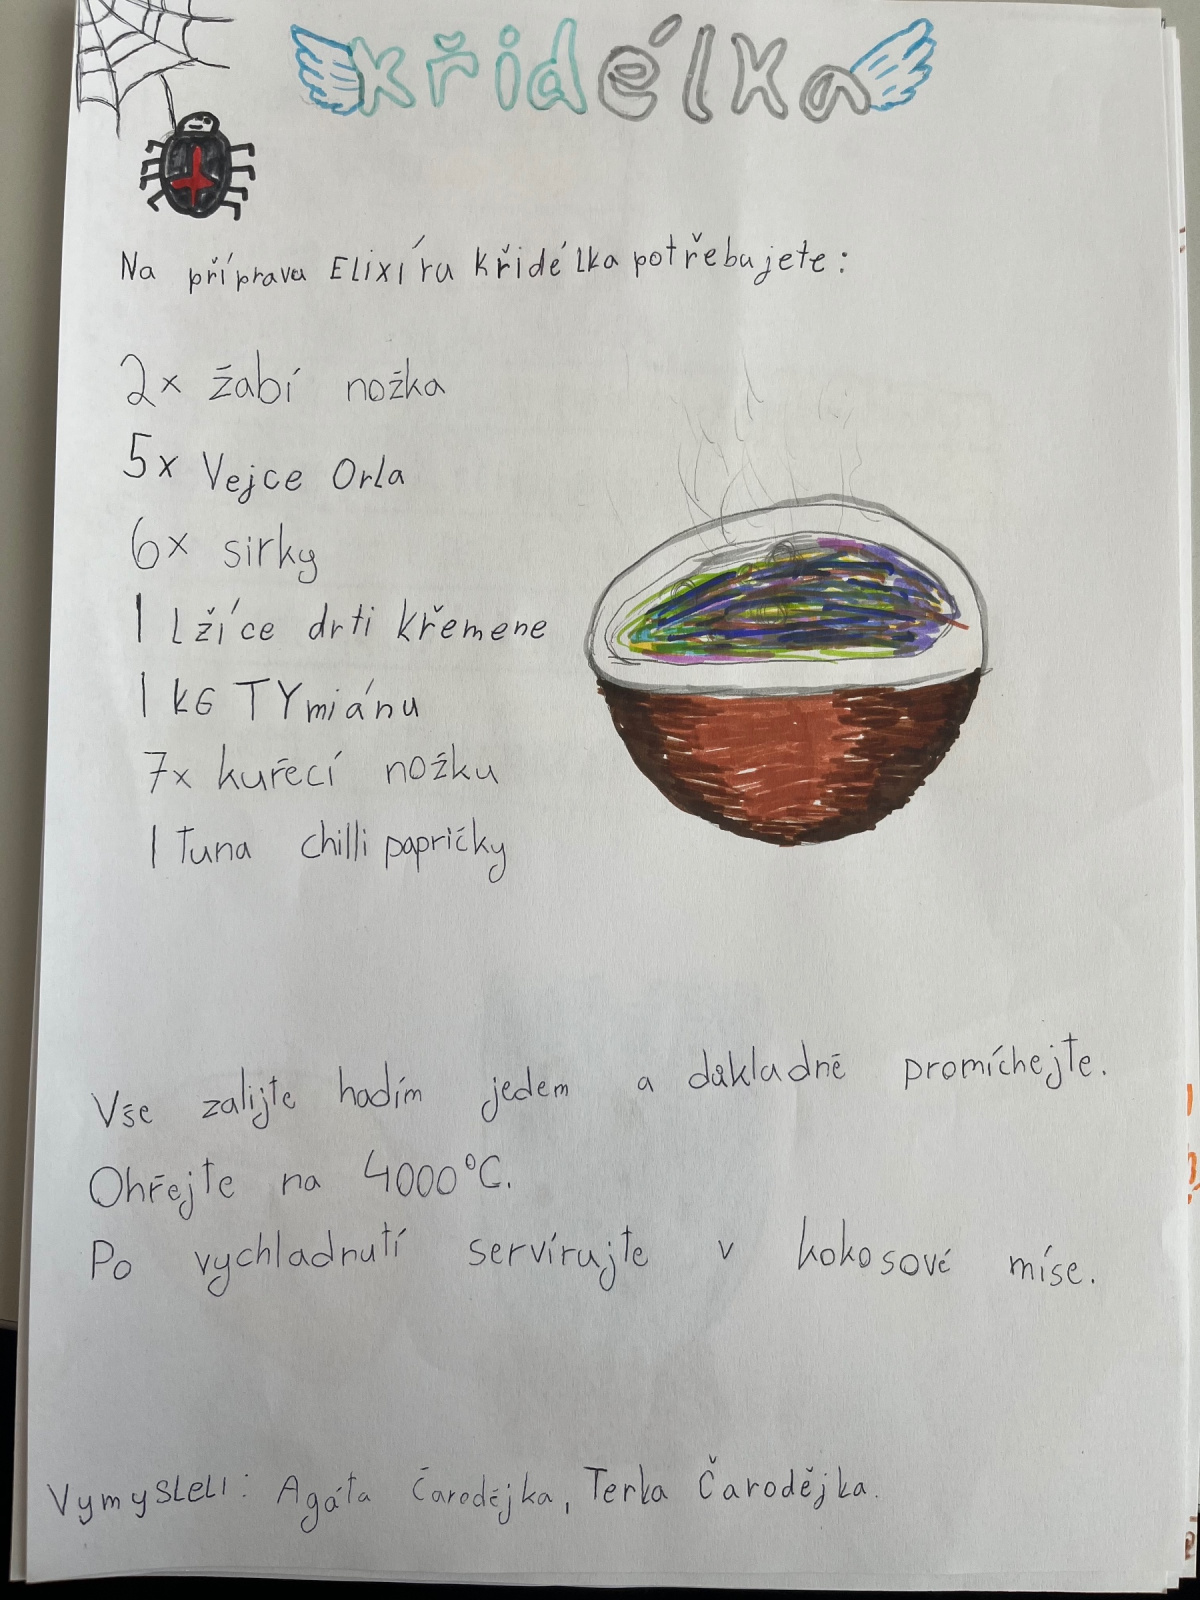 křidélka
Na příprava Elixíru křidélka potřebujete:
2x žabí nožka
5x Vejce Orla
6x sirky
1 Lžíce drti křemene
1 kG TYmiánu
7x kuřecí nožku
1 Tuna chilli papričky
Vše zalijte hadím jedem a důkladně promíchejte.
Ohřejte na 4000°C.
Po vychladnutí servírujte v kokosové míse.
Vymysleli: Agáta Čarodějka, Terka Čarodějka.